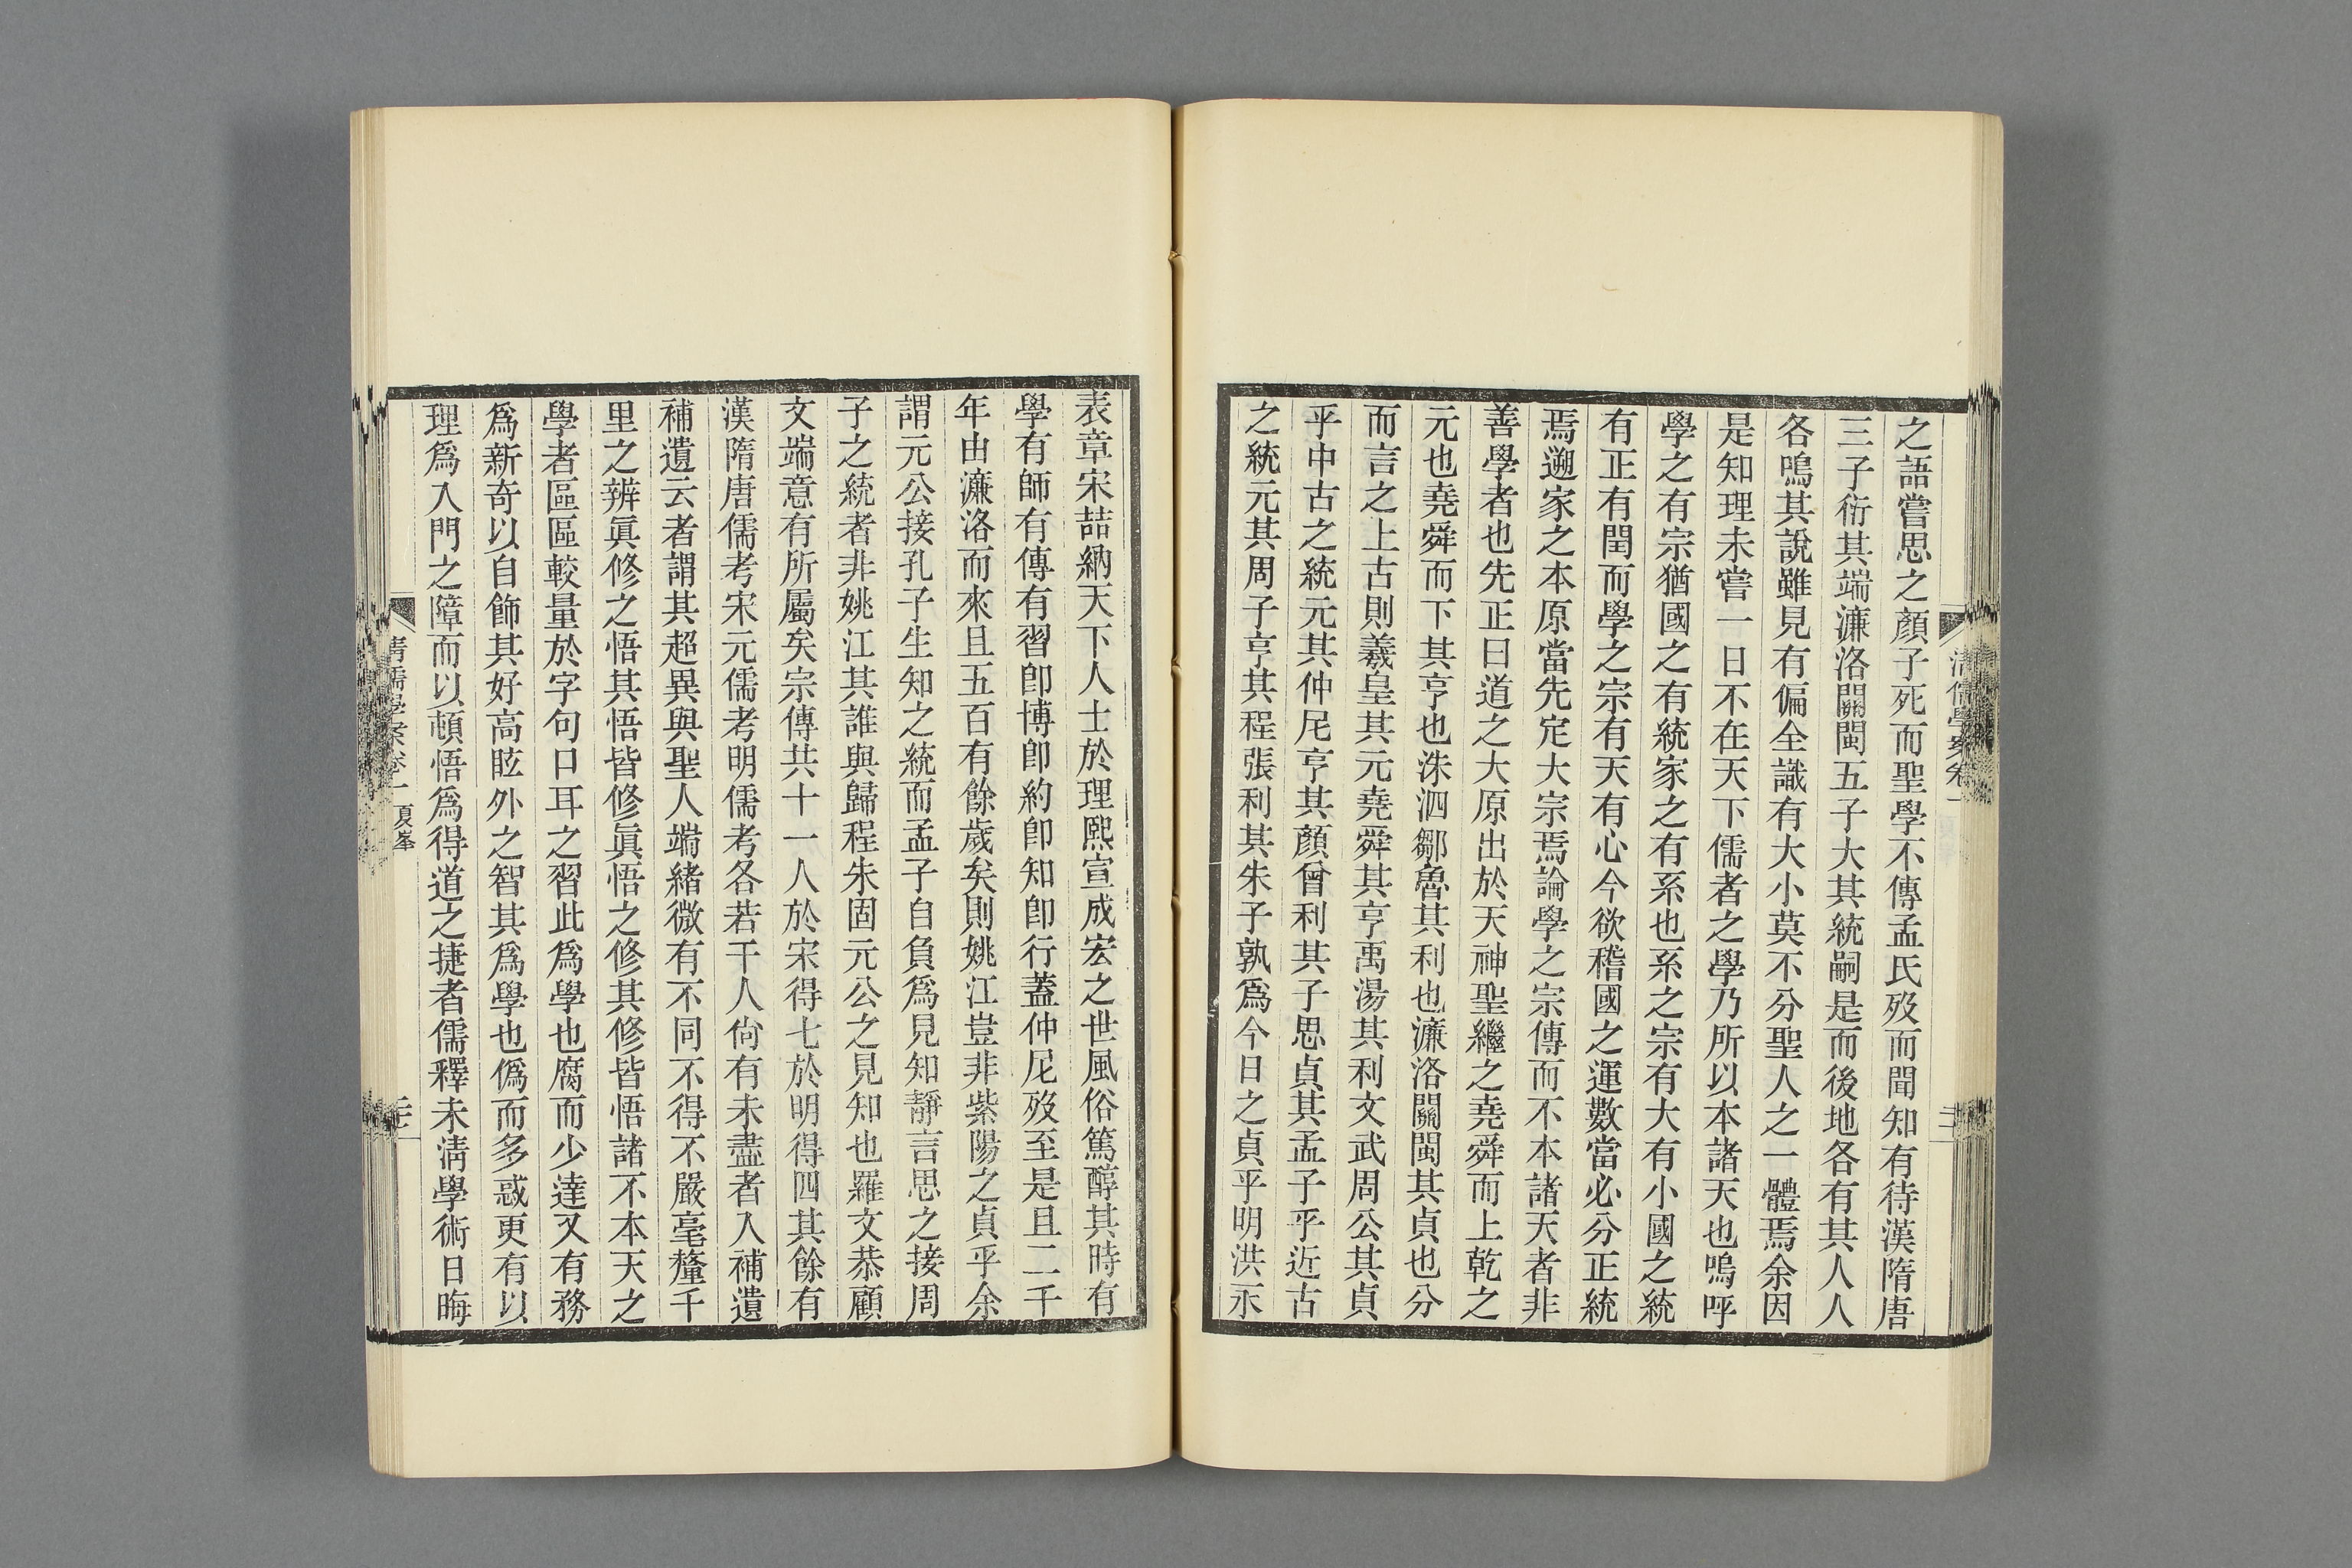 之語嘗思之顏子死而聖學不傳孟氏歿而聞知有待漢隋唐
三子衍其端濂洛關閩五子大其統嗣是而後地各有其人人
各鳴其說雖見有偏全識有大小莫不分聖人之一體焉余因
是知理未嘗一日不在天下儒者之學乃所以本諸天也嗚呼
學之有宗猶國之有統家之有系也系之宗有大有小國之統
有正有閏而學之宗有天有心今欲稽國之運數當必分正統
焉遡家之本原當先定大宗焉論學之宗傳而不本諸天者非
善學者也先正曰道之大原出於天神聖繼之堯舜而上乾之
元也堯舜而下其亨也洙泗鄒魯其利也濂洛關閩其貞也分
而言之上古則羲皇其元堯舜其亨禹湯其利文武周公其貞
乎中古之統元其仲尼亨其顏曾利其子思貞其孟子乎近古
之統元其周子亨其程張利其朱子孰爲今日之貞乎明洪永
表章宋喆納天下人士於理熙宣成宏之世風俗篤醇其時有
學有師有傳有習卽博卽約卽知卽行蓋仲尼歿至是且二千
年由濂洛而來且五百有餘歲矣則姚江豈非紫陽之貞乎余
謂元公接孔子生知之統而孟子自負爲見知靜言思之接周
子之統者非姚江其誰與歸程朱固元公之見知也羅文恭顧
文端意有所屬矣宗傳共十一人於宋得七於明得四其餘有
漢隋唐儒考宋元儒考明儒考各若干人尙有未盡者入補遺
補遺云者謂其超異與聖人端緒微有不同不得不嚴毫釐千
里之辨眞修之悟其悟皆修眞悟之修其修皆悟諸不本天之
學者區區較量於字句口耳之習此爲學也腐而少達又有務
爲新奇以自飾其好高眩外之智其爲學也僞而多惑更有以
理爲入門之障而以頓悟爲得道之捷者儒釋未淸學術日晦
淸儒學案卷一
淸儒學案卷一 夏峯